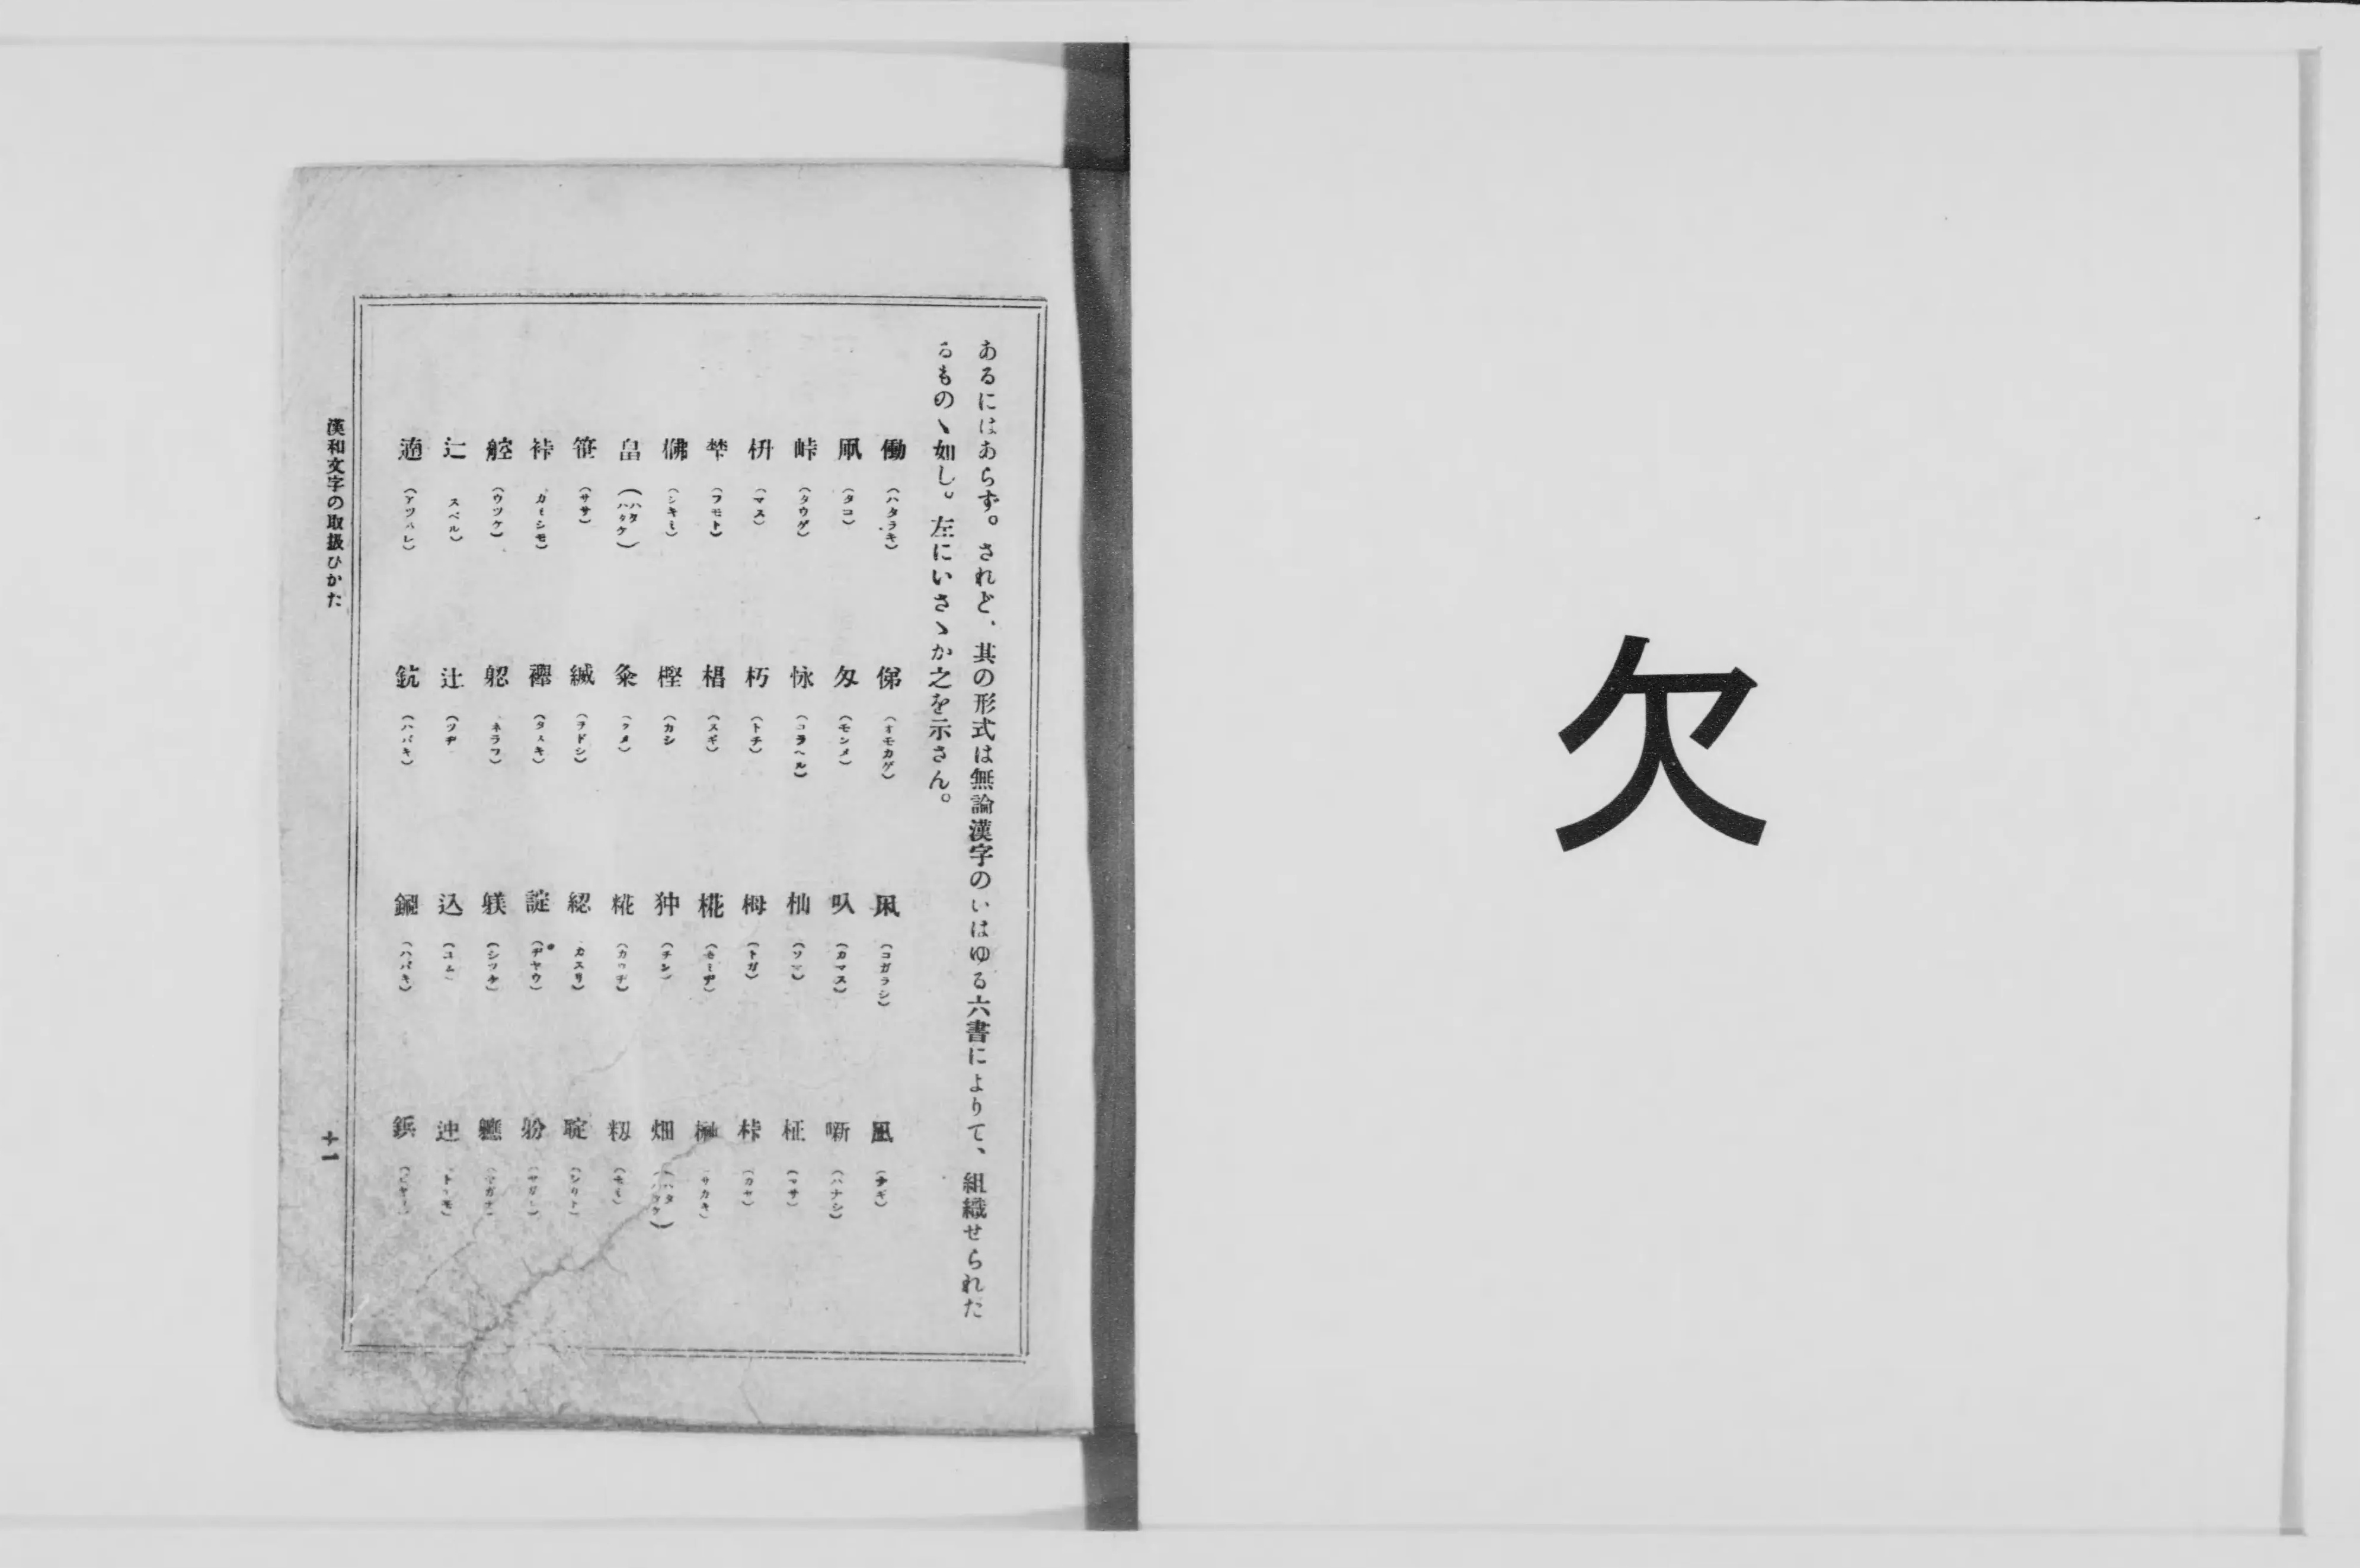 欠
あるにはあらず。されど、其の形式は無論漢字のいはゆる六書によりて、組織せられた
るものゝ如し。左にいさゝか之を示さん。
働(ハタラキ) 俤(オモカゲ) 凩(コガラシ) 凪(ナギ)
凧(タコ) 匁(モンメ) 叺(カマス) 噺(ハナシ)
峠(タウゲ) 怺(コラヘル) 杣(ソマ) 柾(マサ)
枡(マス) 朽(トチ) 栂(トガ) 桛(カセ)
梺(フモト) 椙(スギ) 椛(モミヂ) 榊(サカキ)
梻(シキミ) 樫(カシ 狆(チン) 畑(ハタ ハタケ)
畠(ハタ ハタケ) 粂(クメ) 糀(カウヂ) 籾(モミ)
笹(ササ) 縅(ヲドシ) 綛 カスリ) 聢(シカト)
裃 カミシモ) 襷(タスキ) 諚(ヂヤウ)
躵 ネラフ) 躾(シツケ)
辷 スベル) 辻(ツヂ 込(コム 迚 トテモ)
遖(アツパレ) (ハバキ) (ハバキ)
漢和文字の取扱ひかた
十一